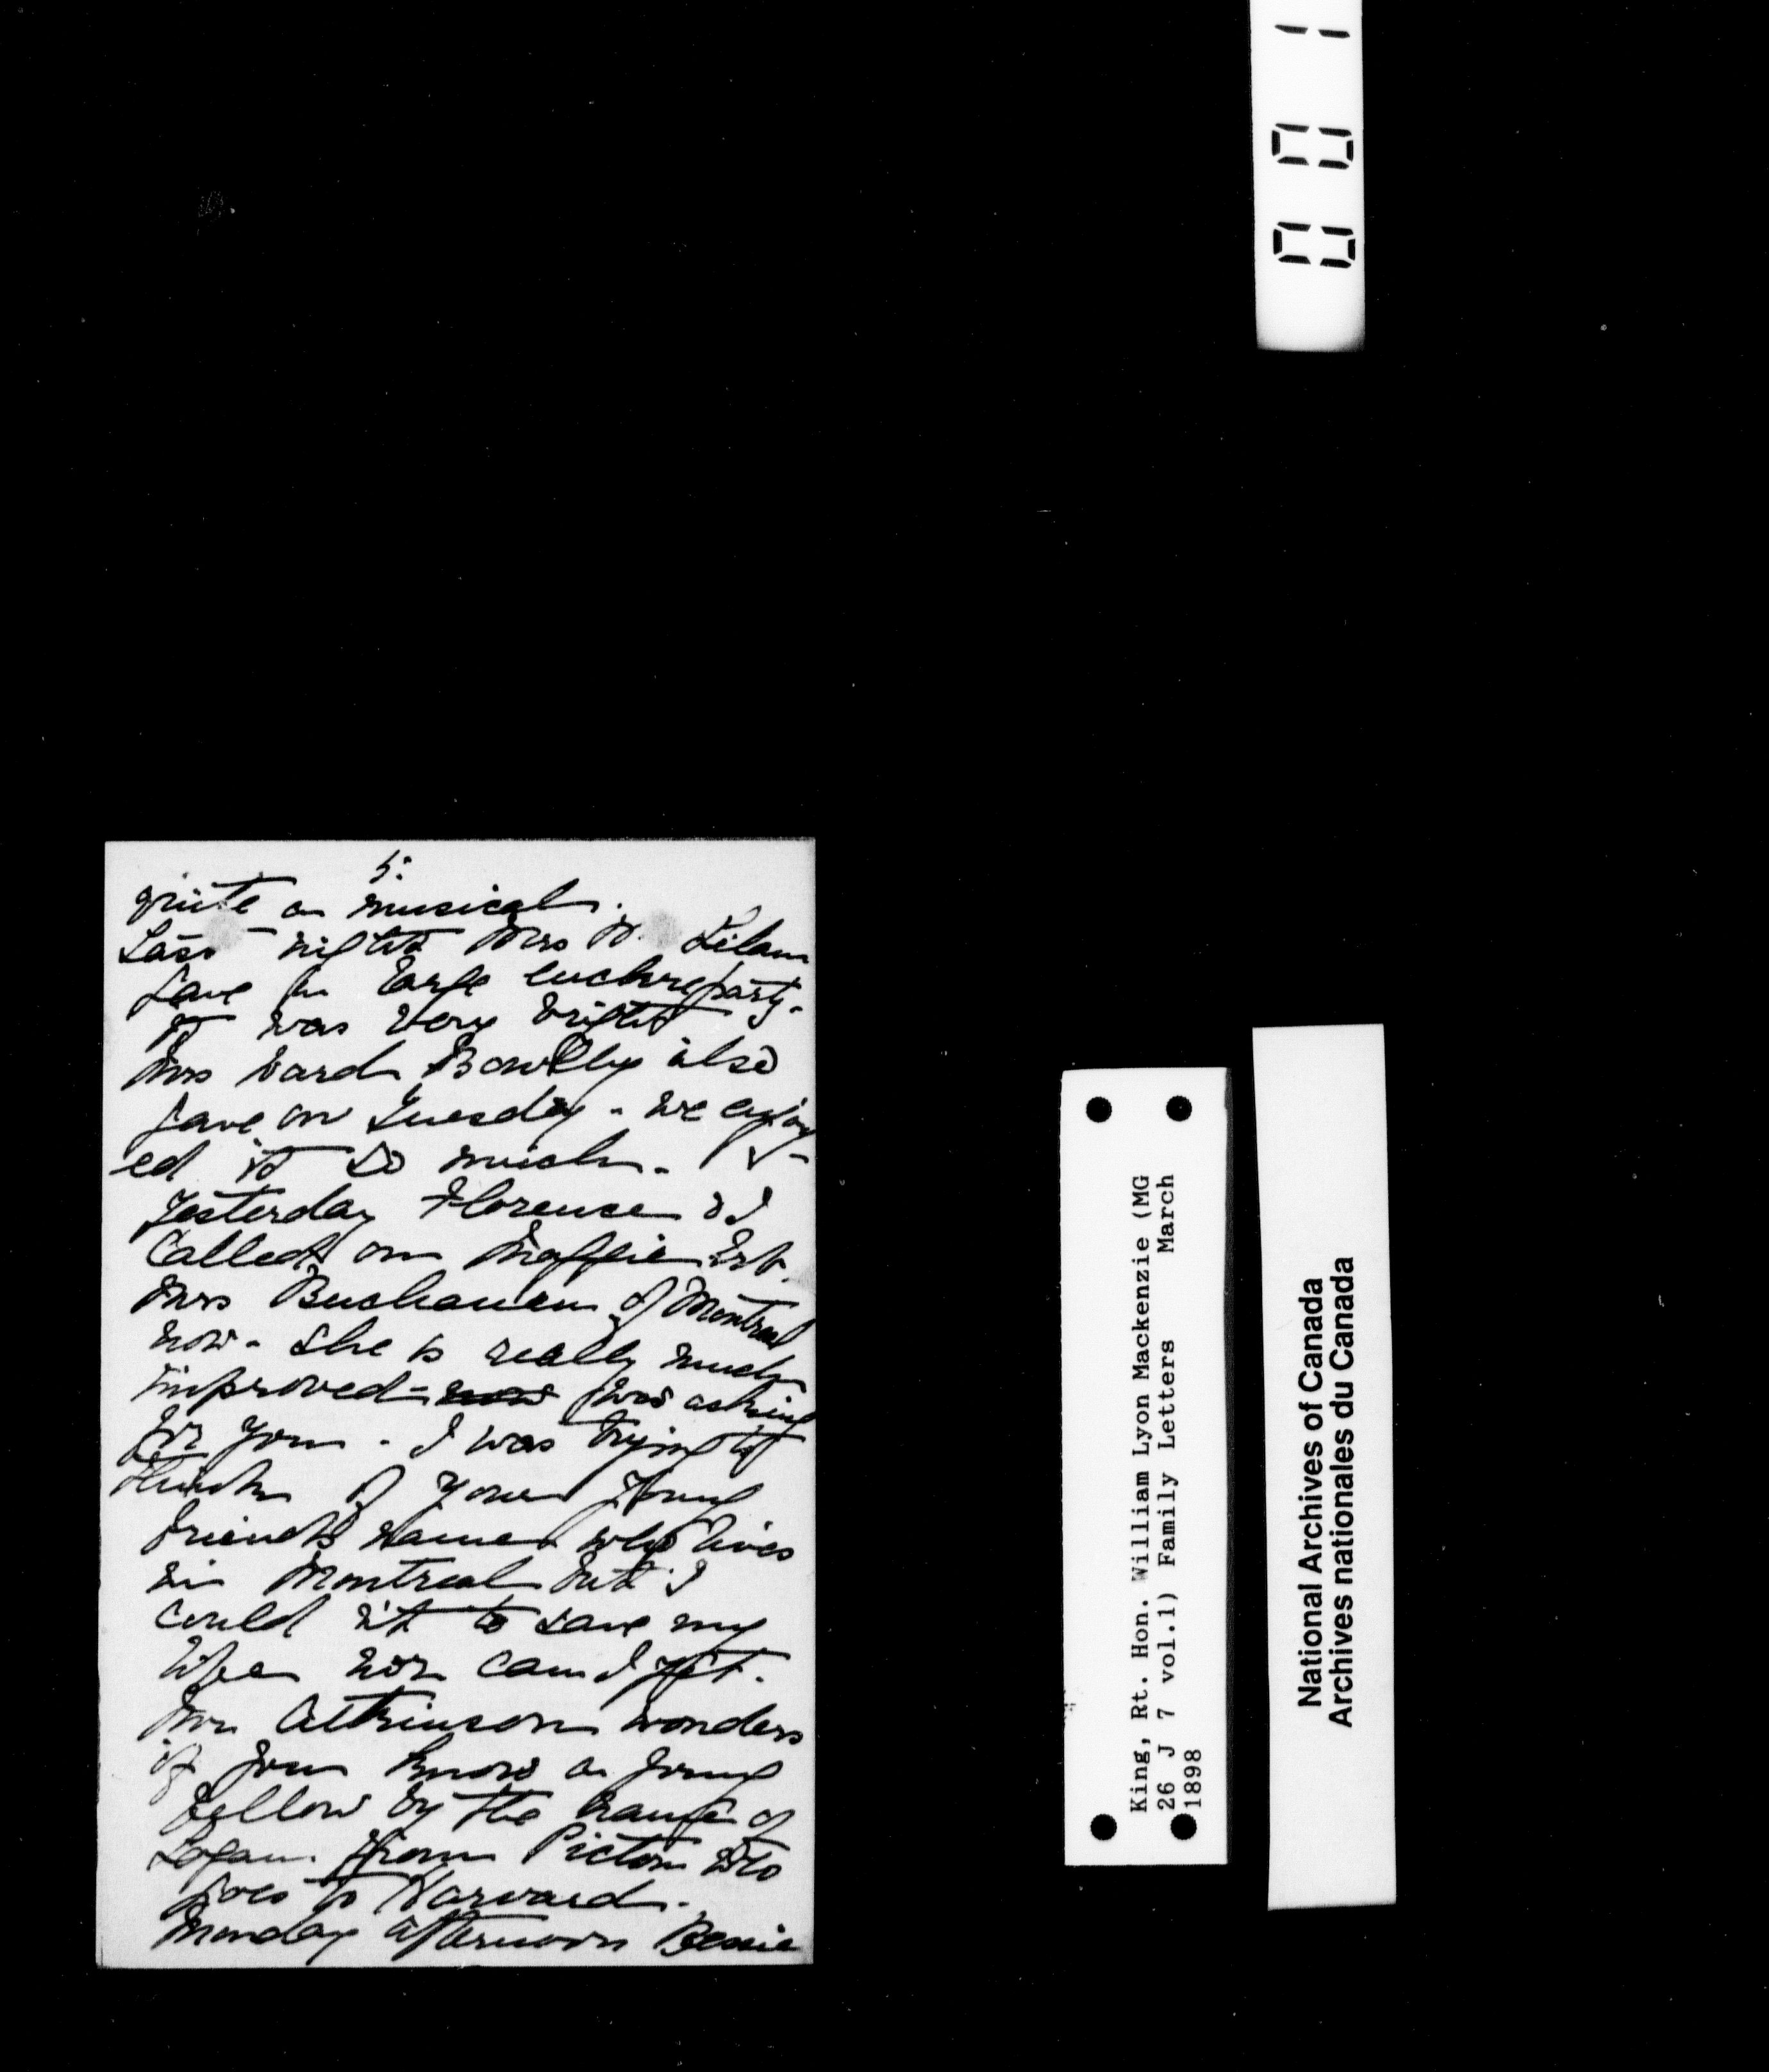 5.
quite a musical.
Last night Mrs W.
gave a large euchre party.
It was very bright
Mrs Ward Bowlby also
gave on Tuesday - we enjoy
ed it so much.
Yesterday Florence & I
called on
Mrs Buchanan of Montreal
now. She is really much
improved - was asking
for you. I was trying to
think of your young
friends name who lives
in Montreal but I
could n't to save my
life nor can I yet.
Mr Atkinson wonders
if you know a young
fellow by the name of
Logan from Pictou who
goes to Harvard.
Monday afternoon Bessie
001
King, Rt. Hon. William Lyon Mackenzie (MG
26 J 7 vol.1) Family Letters March
1898
National Archives of Canada
Archives nationales du Canada